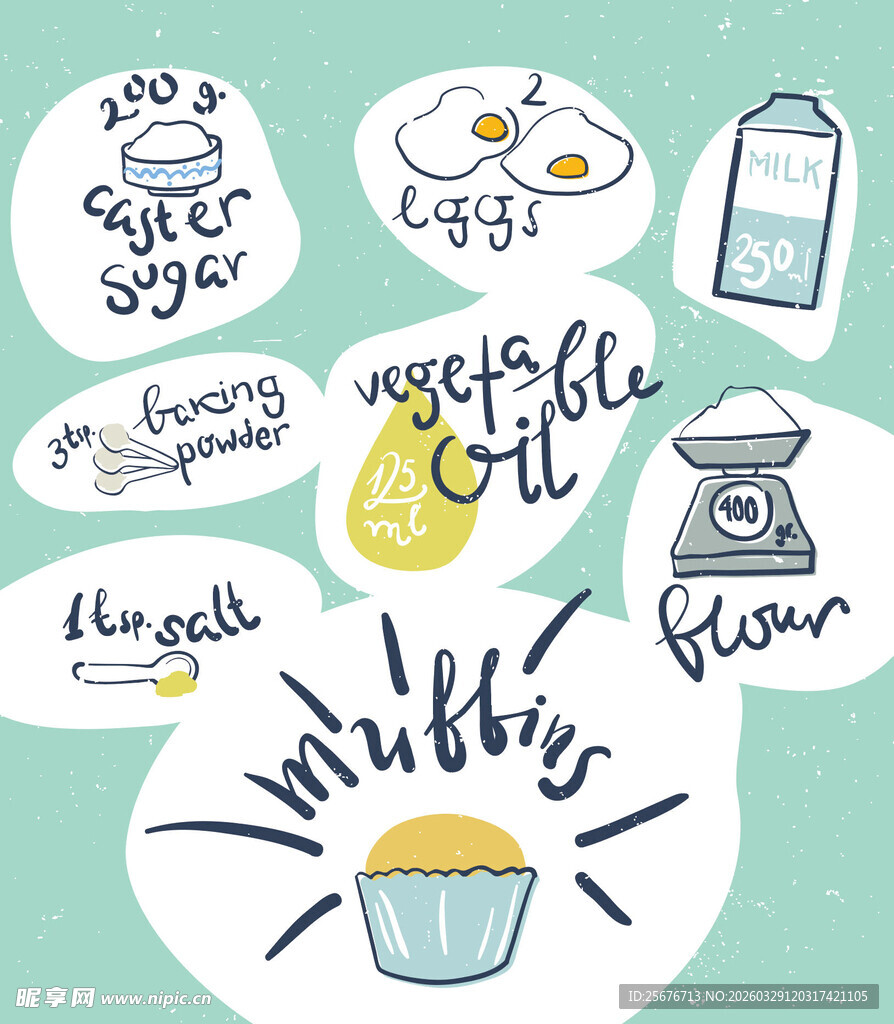 200 g.
caster
sugar
2
eggs
MILK
250 ml
3 tsp.
baking
powder
vegetable
oil
125
ml
400
gr.
flour
1 tsp. salt
muffins
昵享网 www.nipic.cn
ID:25676713 NO:20260329120317421105